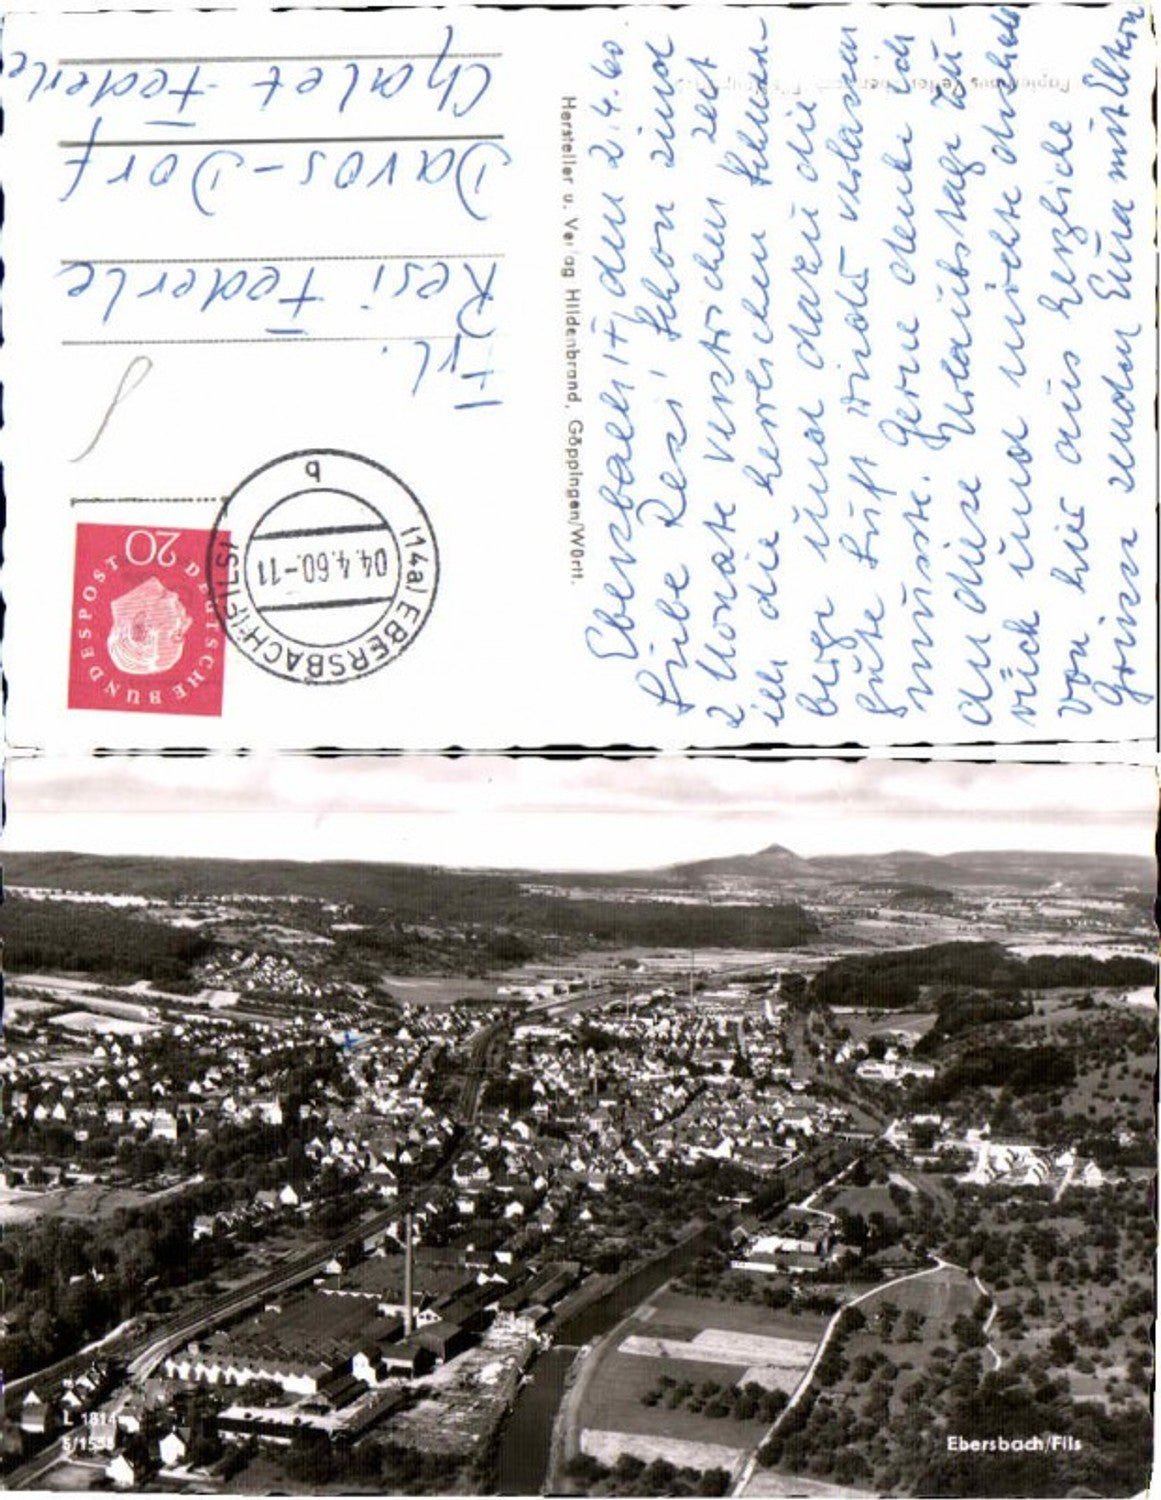 Ebersbach/F, den 2.4.60.
Liebe Resi, schon sind
2 Monate verstrichen seit
ich die herrlichen Schnee-
berge und dazu die
gute Luft wieder verlassen
musste. Gerne denke ich
an diese Urlaubstage zu-
rück und möchte deshalb
von hier aus herzliche
Grüsse senden Eure mit Eltern
Hersteller u. Verlag Hildenbrand, Göppingen/Württ.
DEUTSCHE BUNDESPOST
20
(14a) EBERSBACH (FILS)
04.4.60.-11
b
Frl.
Resi Federle
Davos-Dorf
Chalet Federle
L 1814
5/1558
Ebersbach/Fils